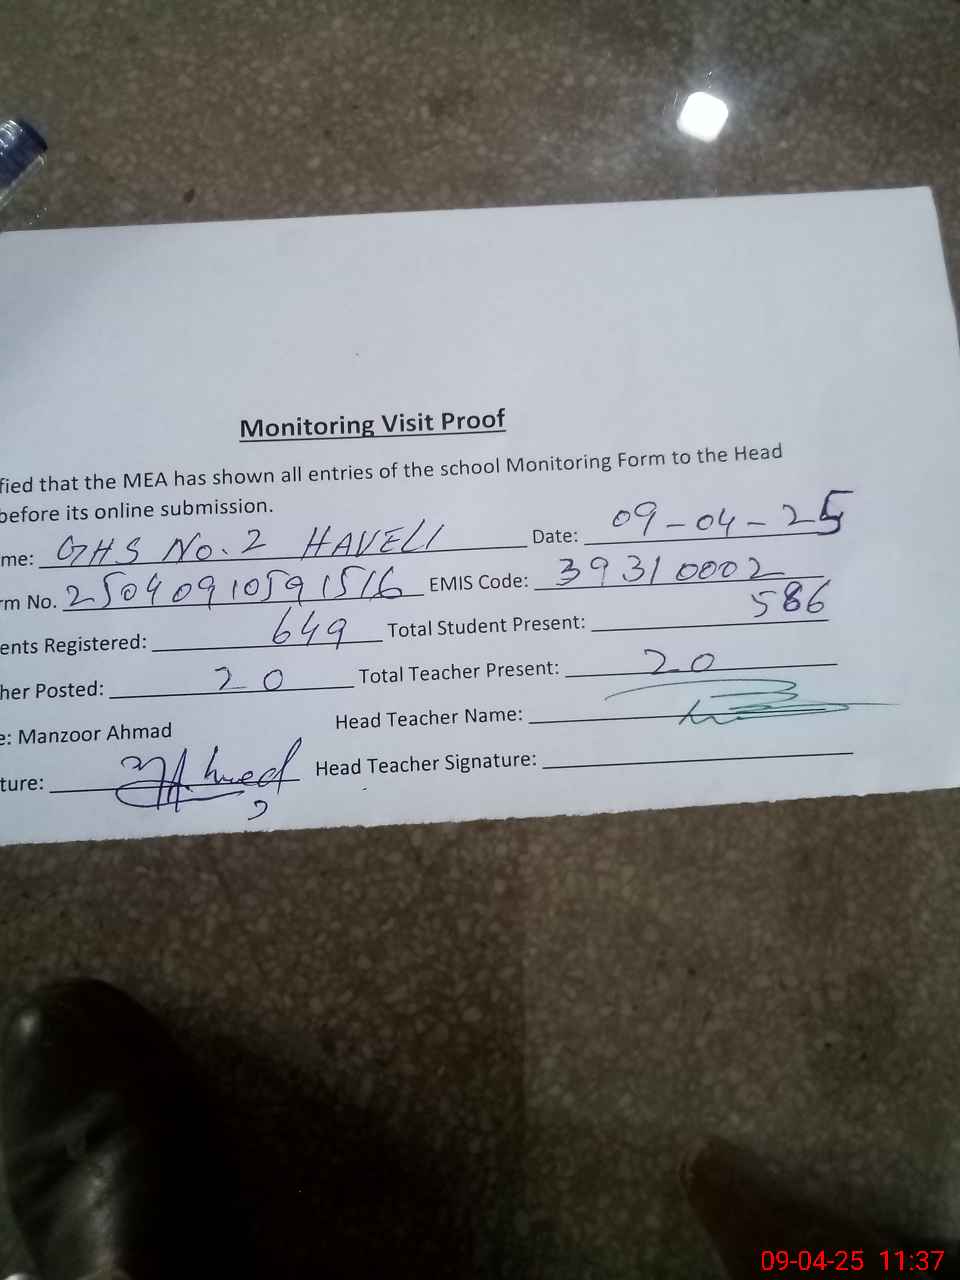 Monitoring Visit Proof
fied that the MEA has shown all entries of the school Monitoring Form to the Head
before its online submission.
me: GHS No. 2 HAVELI Date: 09-04-25
rm No. 25040910591516 EMIS Code: 39310002
ents Registered: 649 Total Student Present: 586
her Posted: 20 Total Teacher Present: 20
e: Manzoor Ahmad Head Teacher Name:
ture: MAhmed Head Teacher Signature:
09-04-25 11:37